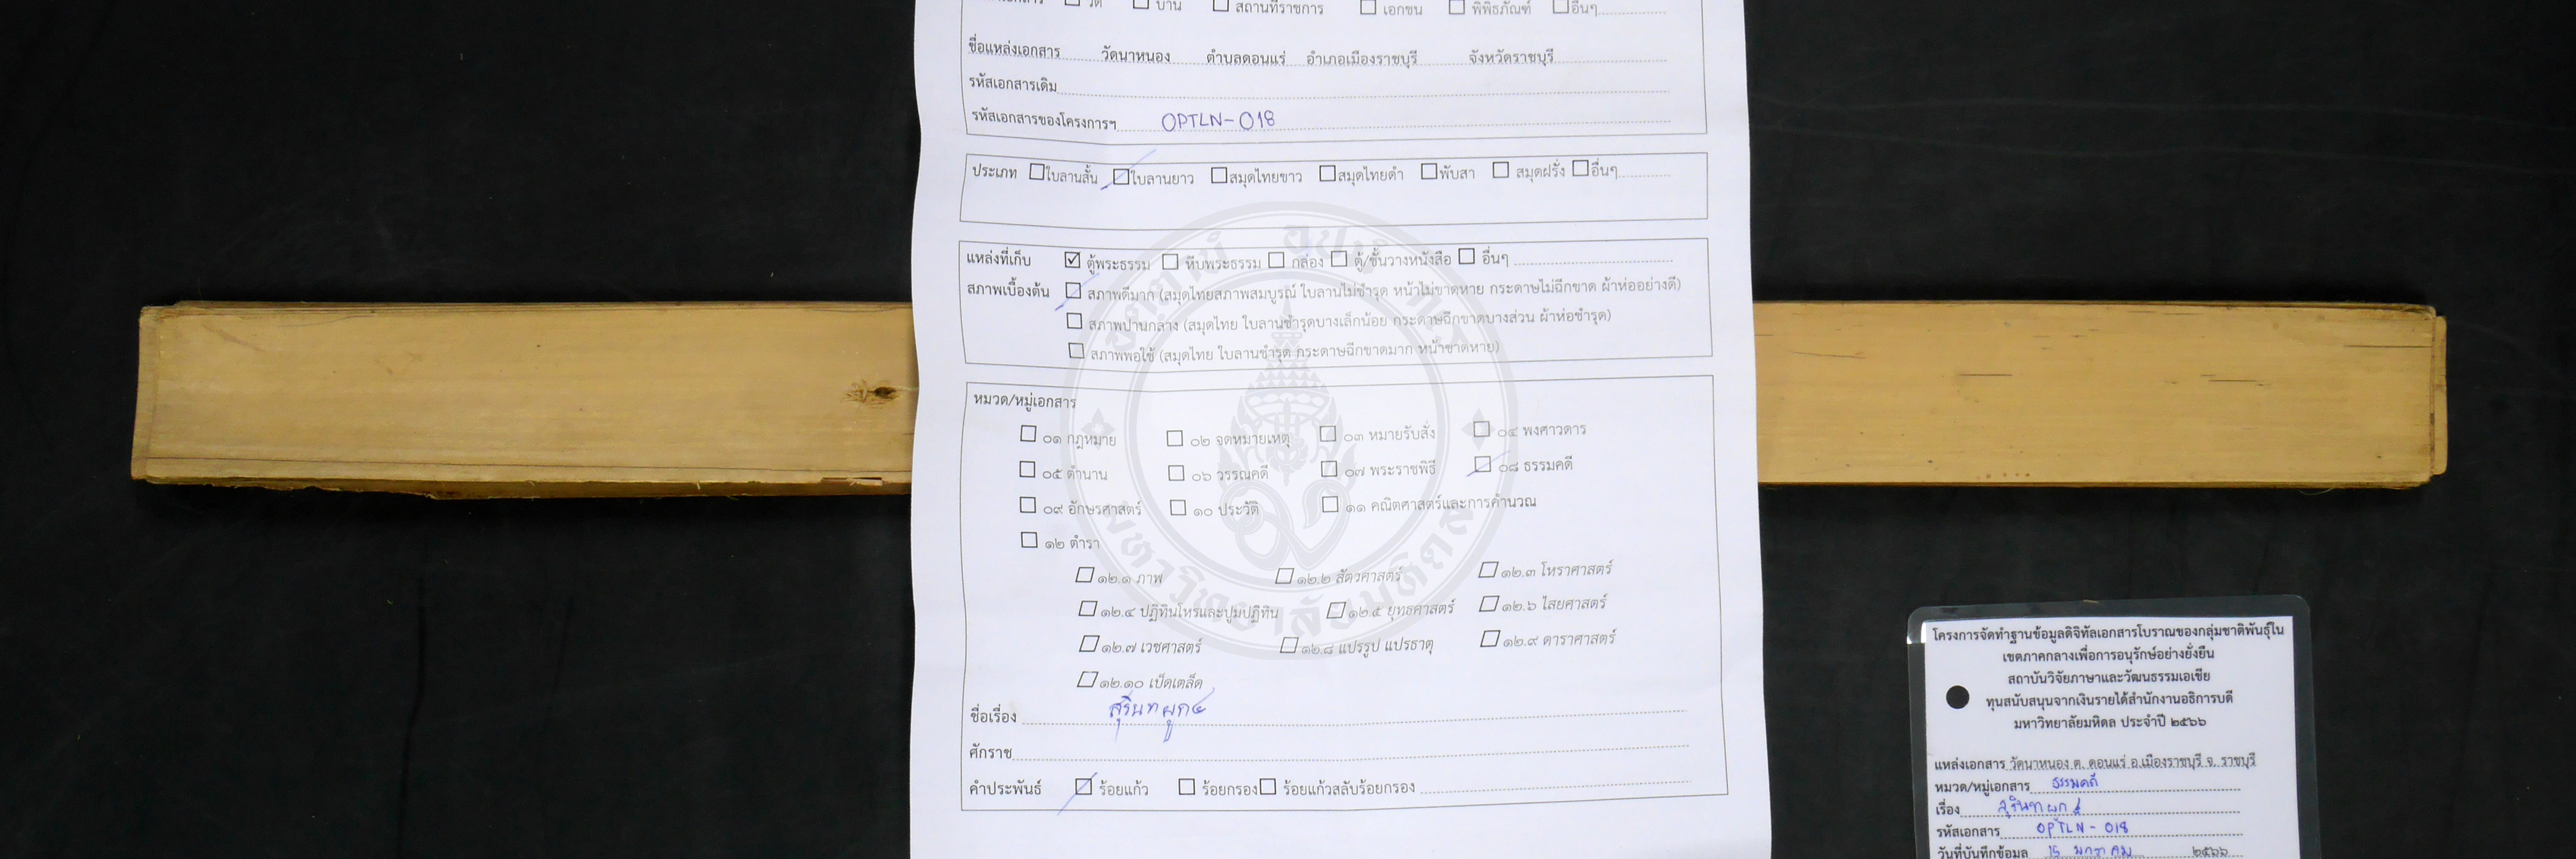 วัด บ้าน สถานที่ราชการ เอกชน พิพิธภัณฑ์ อื่นๆ
ชื่อแหล่งเอกสาร วัดนาหนอง ตำบลดอนแร่ อำเภอเมืองราชบุรี จังหวัดราชบุรี
รหัสเอกสารเดิม
รหัสเอกสารของโครงการฯ OPTLN-018
ประเภท ใบลานสั้น ใบลานยาว สมุดไทยขาว สมุดไทยดำ พับสา สมุดฝรั่ง อื่นๆ
แหล่งที่เก็บ ตู้พระธรรม หีบพระธรรม กล่อง ตู้/ชั้นวางหนังสือ อื่นๆ
สภาพเบื้องต้น สภาพดีมาก (สมุดไทยสภาพสมบูรณ์ ใบลานไม่ชำรุด หน้าไม่ขาดหาย กระดาษไม่ฉีกขาด ผ้าห่ออย่างดี)
สภาพปานกลาง (สมุดไทย ใบลานชำรุดบางเล็กน้อย กระดาษฉีกขาดบางส่วน ผ้าห่อชำรุด)
สภาพพอใช้ (สมุดไทย ใบลานชำรุด กระดาษฉีกขาดมาก หน้าขาดหาย)
หมวด/หมู่เอกสาร
๐๑ กฎหมาย ๐๒ จดหมายเหตุ ๐๓ หมายรับสั่ง ๐๔ พงศาวดาร
๐๕ ตำนาน ๐๖ วรรณคดี ๐๗ พระราชพิธี ๐๘ ธรรมคดี
๐๙ อักษรศาสตร์ ๑๐ ประวัติ ๑๑ คณิตศาสตร์และการคำนวณ
๑๒ ตำรา
๑๒.๑ ภาพ ๑๒.๒ สัตวศาสตร์ ๑๒.๓ โหราศาสตร์
๑๒.๔ ปฏิทินโหรและปูมปฏิทิน ๑๒.๕ ยุทธศาสตร์ ๑๒.๖ ไสยศาสตร์
๑๒.๗ เวชศาสตร์ ๑๒.๘ แปรรูป แปรธาตุ ๑๒.๙ ดาราศาสตร์
๑๒.๑๐ เบ็ดเตล็ด
ชื่อเรื่อง สุรินท ผูก๔
ศักราช
คำประพันธ์ ร้อยแก้ว ร้อยกรอง ร้อยแก้วสลับร้อยกรอง
มหาวิทยาลัยมหิดล
โครงการจัดทำฐานข้อมูลดิจิทัลเอกสารโบราณของกลุ่มชาติพันธุ์ใน
เขตภาคกลางเพื่อการอนุรักษ์อย่างยั่งยืน
สถาบันวิจัยภาษาและวัฒนธรรมเอเชีย
ทุนสนับสนุนจากเงินรายได้สำนักงานอธิการบดี
มหาวิทยาลัยมหิดล ประจำปี ๒๕๖๖
แหล่งเอกสาร วัดนาหนอง ต. ดอนแร่ อ.เมืองราชบุรี จ. ราชบุรี
หมวด/หมู่เอกสาร ธรรมคดี
เรื่อง สุรินท ผูก ๔
รหัสเอกสาร OPTLN - 018
วันที่บันทึกข้อมูล 15 มกราคม ๒๕๖๖